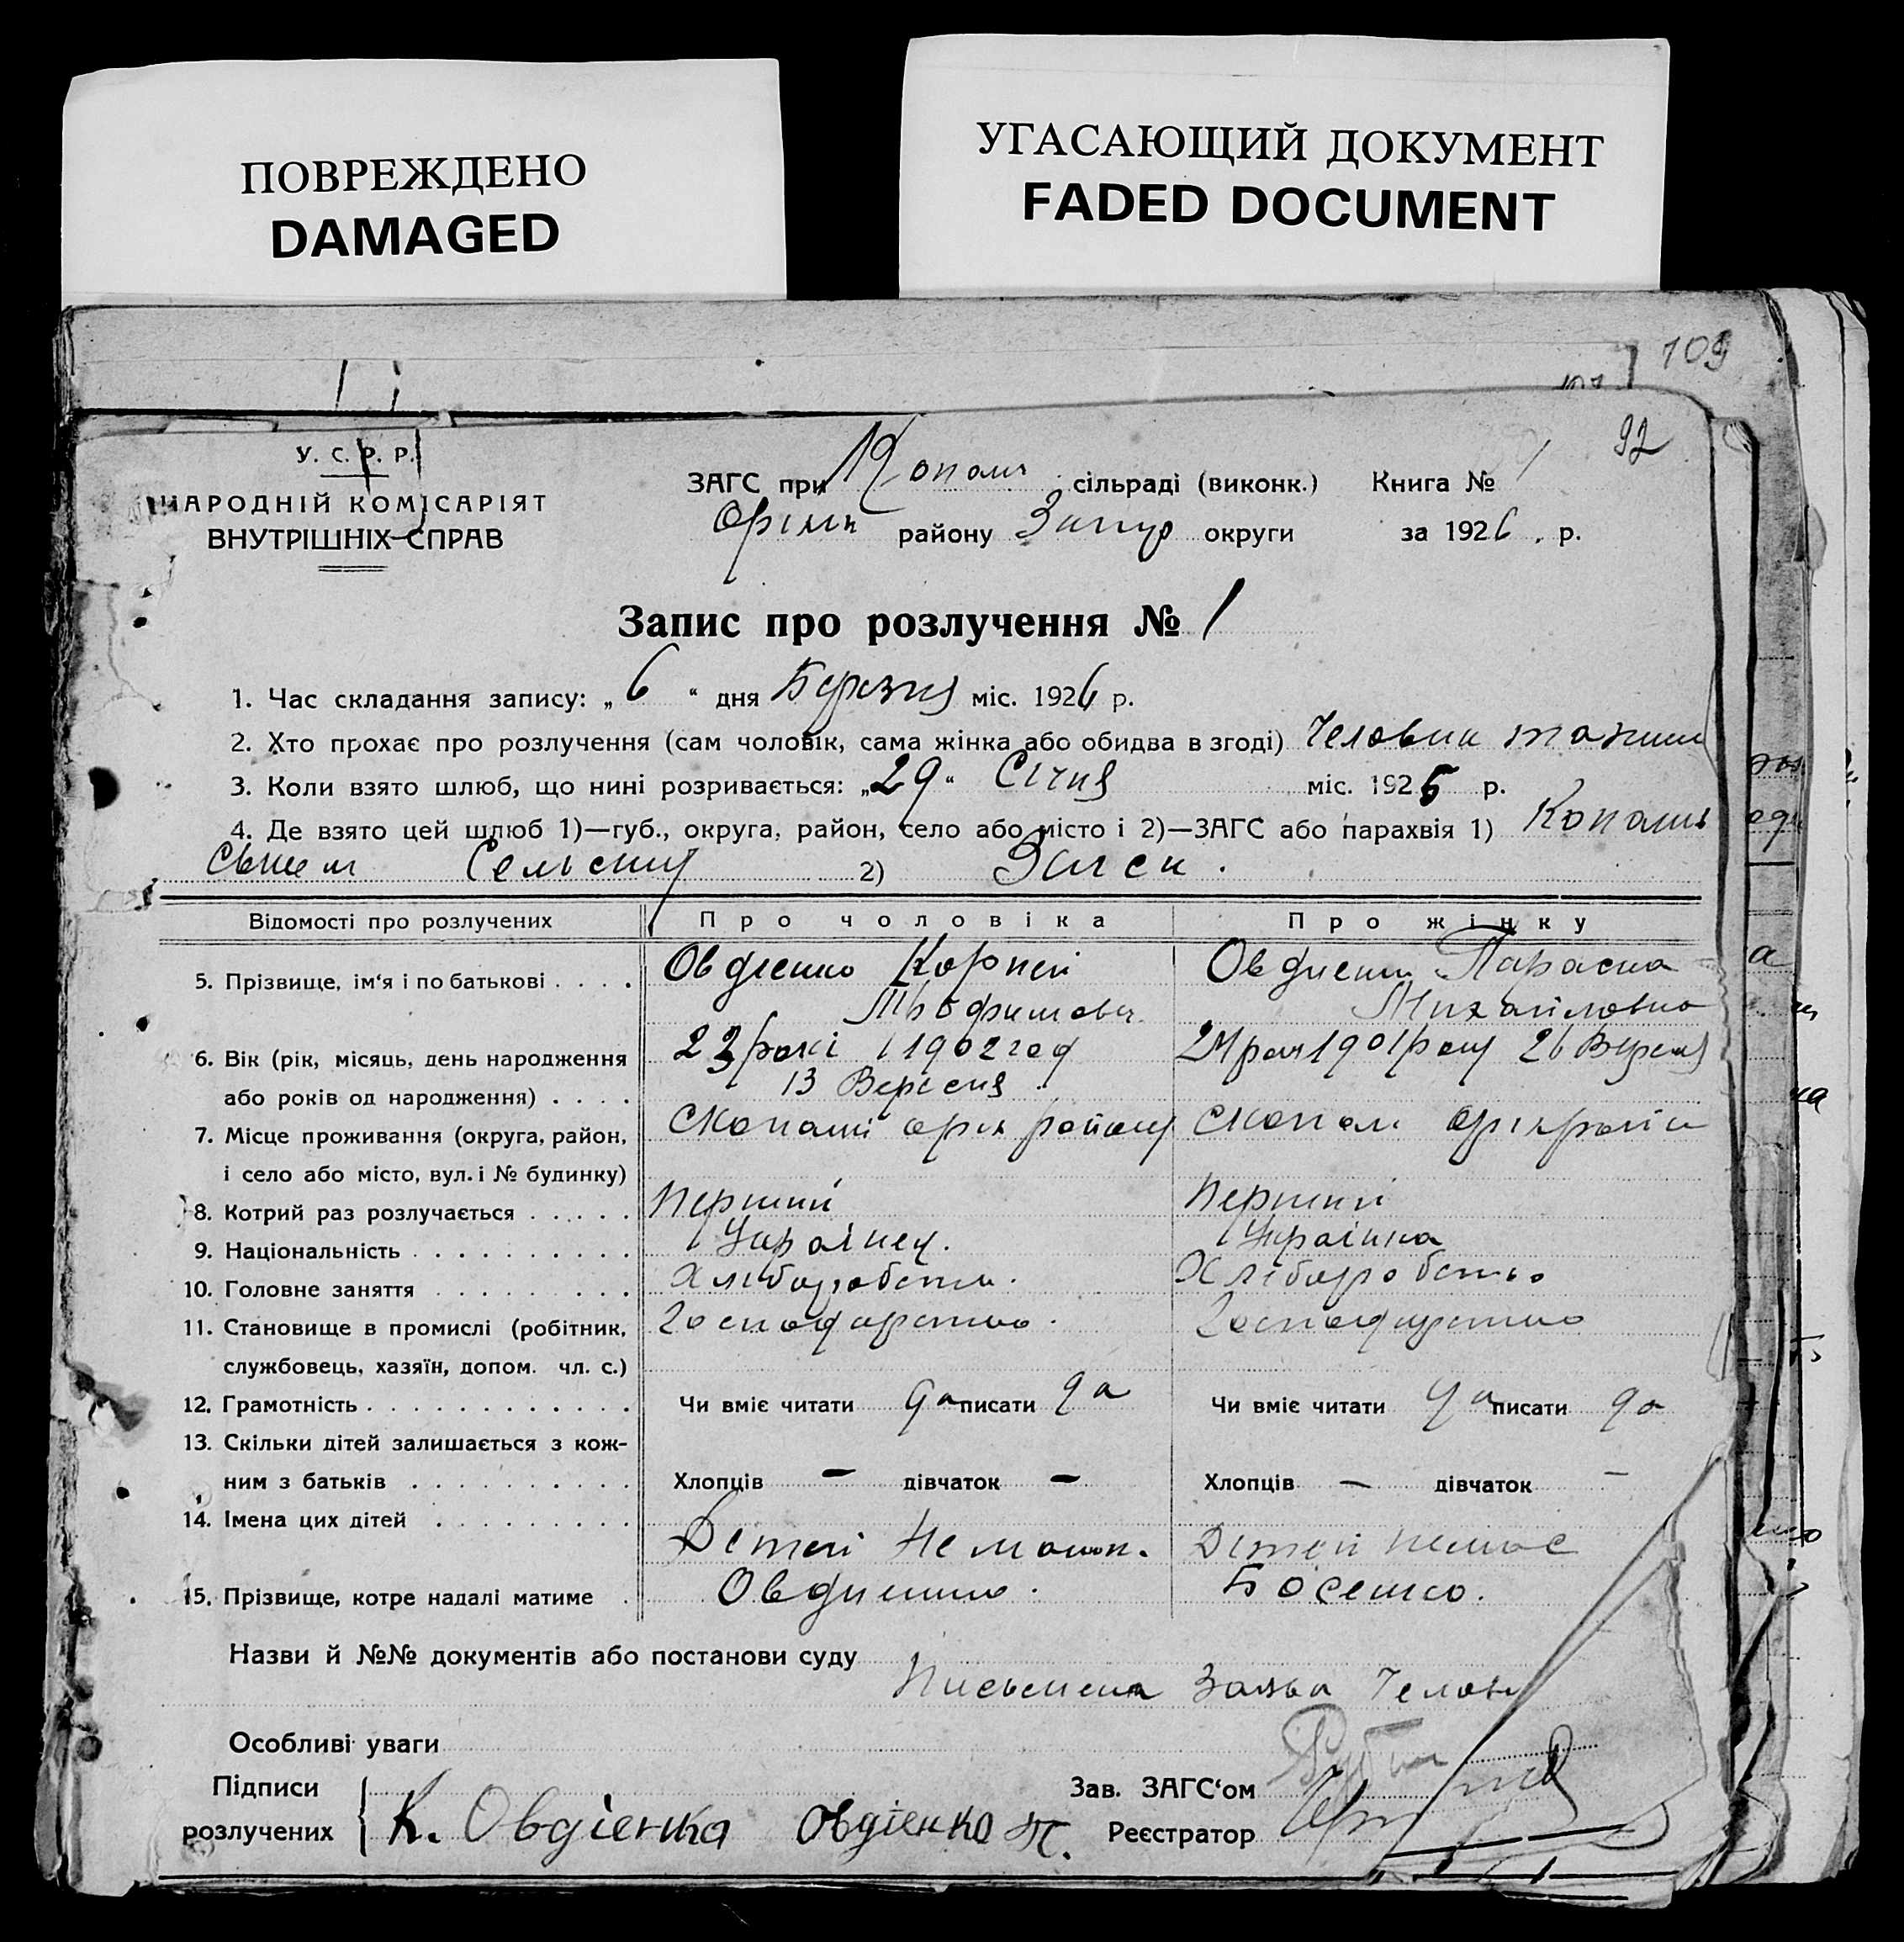 ПОВРЕЖДЕНО
DAMAGED
УГАСАЮЩИЙ ДОКУМЕНТ
FADED DOCUMENT
109
92
У. С. Р. Р.
НАРОДНІЙ КОМІСАРІЯТ
ВНУТРІШНІХ СПРАВ
ЗАГС при Копань сільраді (виконк.) Книга № 1
Оріхн району Запор округи за 1926 . р.
Запис про розлучення № 1
1. Час складання запису: „6“ дня Березня міс. 1926 р.
2. Хто прохає про розлучення (сам чоловік, сама жінка або обидва в згоді) Человик
3. Коли взято шлюб, що нині розривається: „29“ Січня міс. 1925 р.
4. Де взято цей шлюб 1)—губ., округа, район, село або місто і 2)—ЗАГС або парахвія 1) Копань
2)
Відомості про розлучених Про чоловіка Про жінку
5. Прізвище, ім‘я і по батькові . . . . Овдіенко Корней Овдиенко Параска
Трофимович Михайловна
6. Вік (рік, місяць, день народження 23 рокі 1902 год 24 рок 1901 року 26 Вересня
або років од народження) . . . . 13 Вересня
7. Місце проживання (округа, район, с Копані оріх району с Копані оріх району
і село або місто, вул. і № будинку)
8. Котрий раз розлучається . . . . . Перший Перший
9. Національність . . . . . . . . . . Українец. Українка
10. Головне заняття . . . . . . . . . Хліборобство. Хліборобство
11. Становище в промислі (робітник, Господарство. Господарство
службовець, хазяїн, допом. чл. с.)
12. Грамотність . . . . . . . . . . . . Чи вміє читати да писати да Чи вміє читати да писати да
13. Скільки дітей залишається з кож-
ним з батьків . . . . . . . . . . Хлопців — дівчаток — Хлопців — дівчаток —
14. Імена цих дітей . . . . . . . . .
Детей Не Детей немає
15. Прізвище, котре надалі матиме . Овдиенко. Босенко.
Назви й №№ документів або постанови суду
Письмена Заява Челов
Особливі уваги
Підписи Зав. ЗАГС‘ом
розлучених К. Овдіенка Овдіенко П. Реєстратор